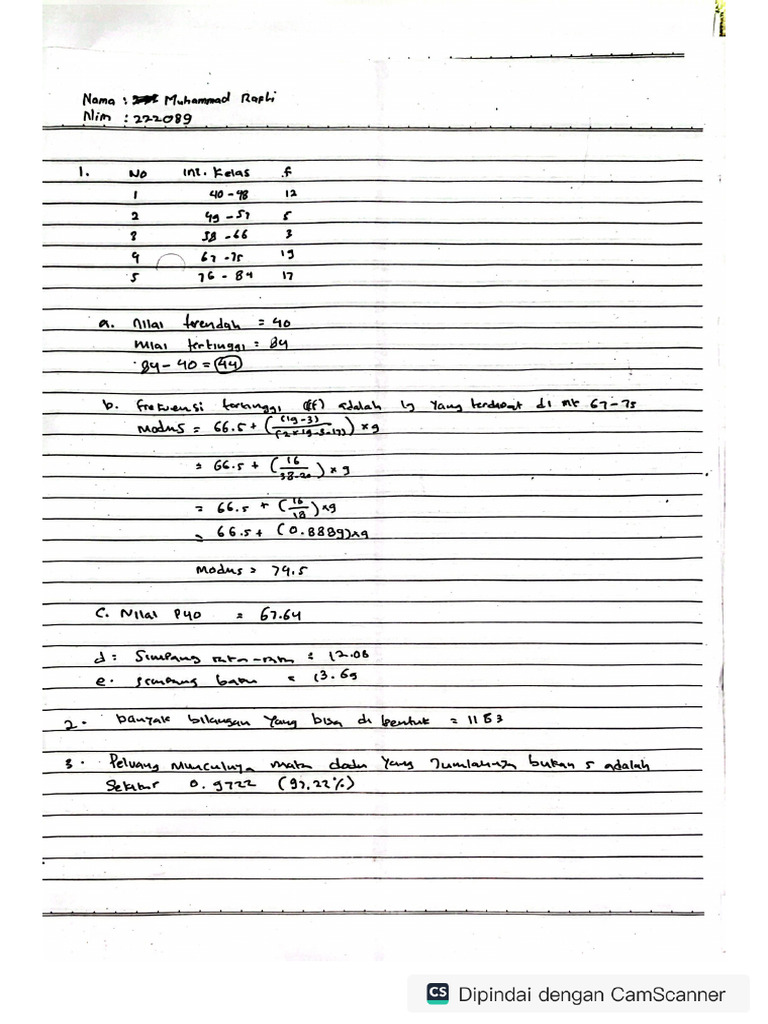 Nama : Muhammad Rafli
Nim : 222089
1. No Int. Kelas f
1 40 - 48 12
2 49 - 57 5
3 58 - 66 3
4 67 - 75 19
5 76 - 84 17
a. Nilai terendah = 40
Nilai tertinggi = 84
84 - 40 = 44
b. Frekuensi tertinggi (f) adalah 19 yang terdapat di 67-75
Modus = 66.5 + ((19-3)/(2×19-3-17)) × 9
= 66.5 + (16/38-20) × 9
= 66.5 + (16/18) × 9
= 66.5 + (0.8889) × 9
Modus = 74.5
C. Nilai P40 = 67.64
d = Simpang rata-rata = 12.06
e. Simpang baku = 13.69
2. banyak bilangan yang bisa di bentuk =
3. Peluang munculnya mata dadu yang Jumlahnya bukan 5 adalah
Sekitar 0.9722 (97,22%)
CS Dipindai dengan CamScanner